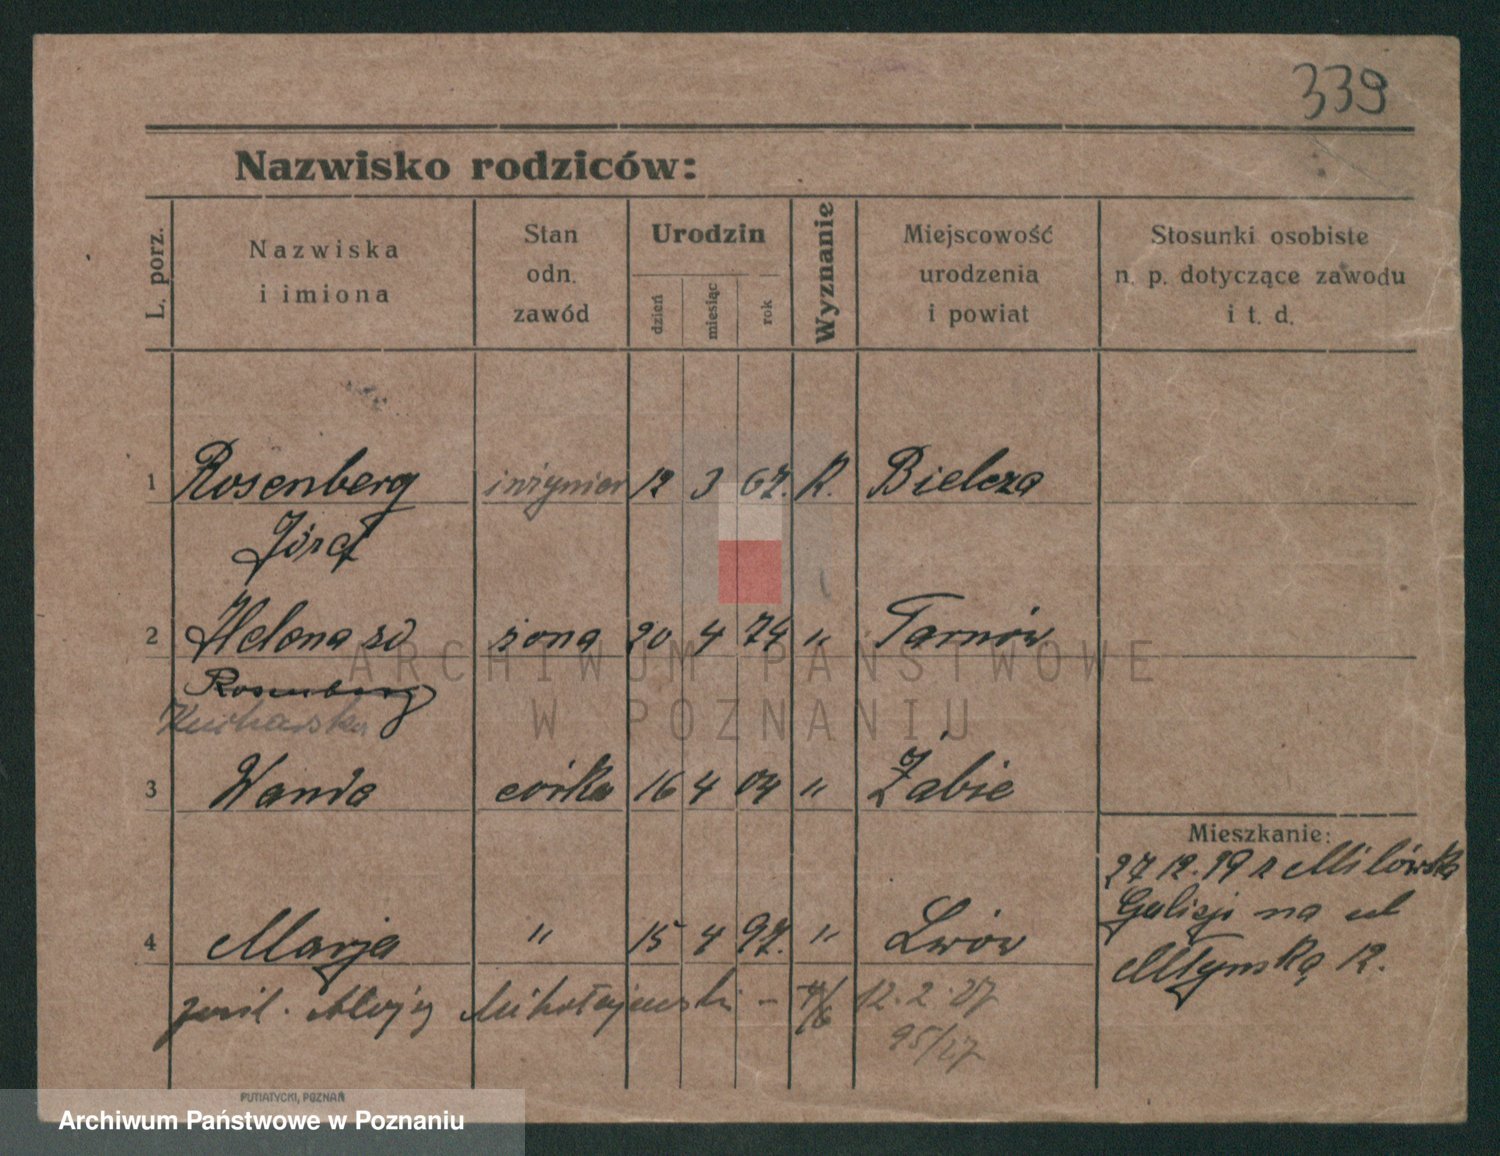 339
Nazwisko rodziców:
L. porz.
Nazwiska
i imiona
Stan
odn.
zawód
Urodzin
dzień
miesiąc
rok
Wyznanie
Miejscowość
urodzenia
i powiat
Stosunki osobiste
n. p. dotyczące zawodu
i t. d.
1 Rosenberg inżynier 12 3 67. R. Bielcza
Józef
2 Helena zd żona 20 4 74 " Tarnów
Rosenberg
Kucharska
3 Wanda córka 16 4 04 " Żabie
Mieszkanie:
27 12. 19 z Milówka
Galicji na ul
Młyńską 12.
4 Marja " 15 4 97. " Lwów
Mikołajewski - 12. 2. 27
95/27
PUTIATYCKI, POZNAŃ
ARCHIWUM PAŃSTWOWE
W POZNANIU
Archiwum Państwowe w Poznaniu